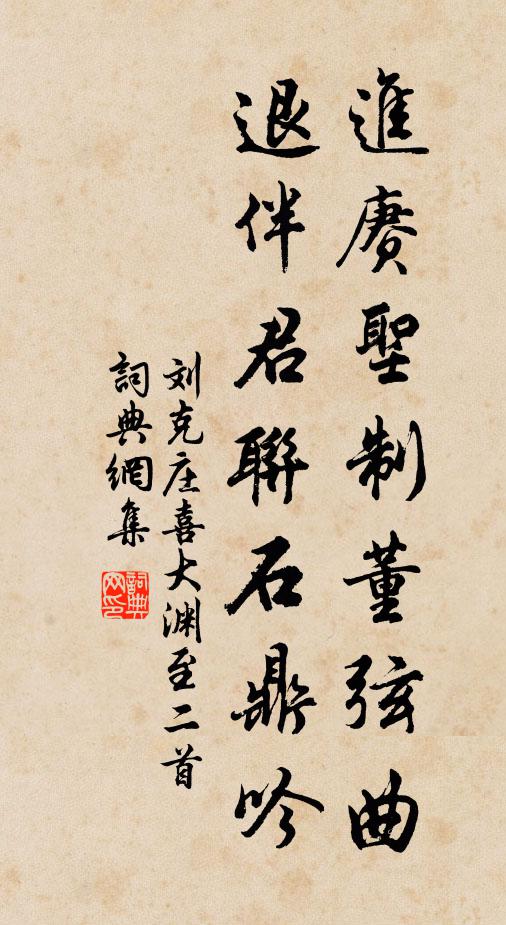 進賡聖制董弦曲
退伴君聯石鼎吟
刘克庄喜大渊至二首
詞典網集
詞典网印